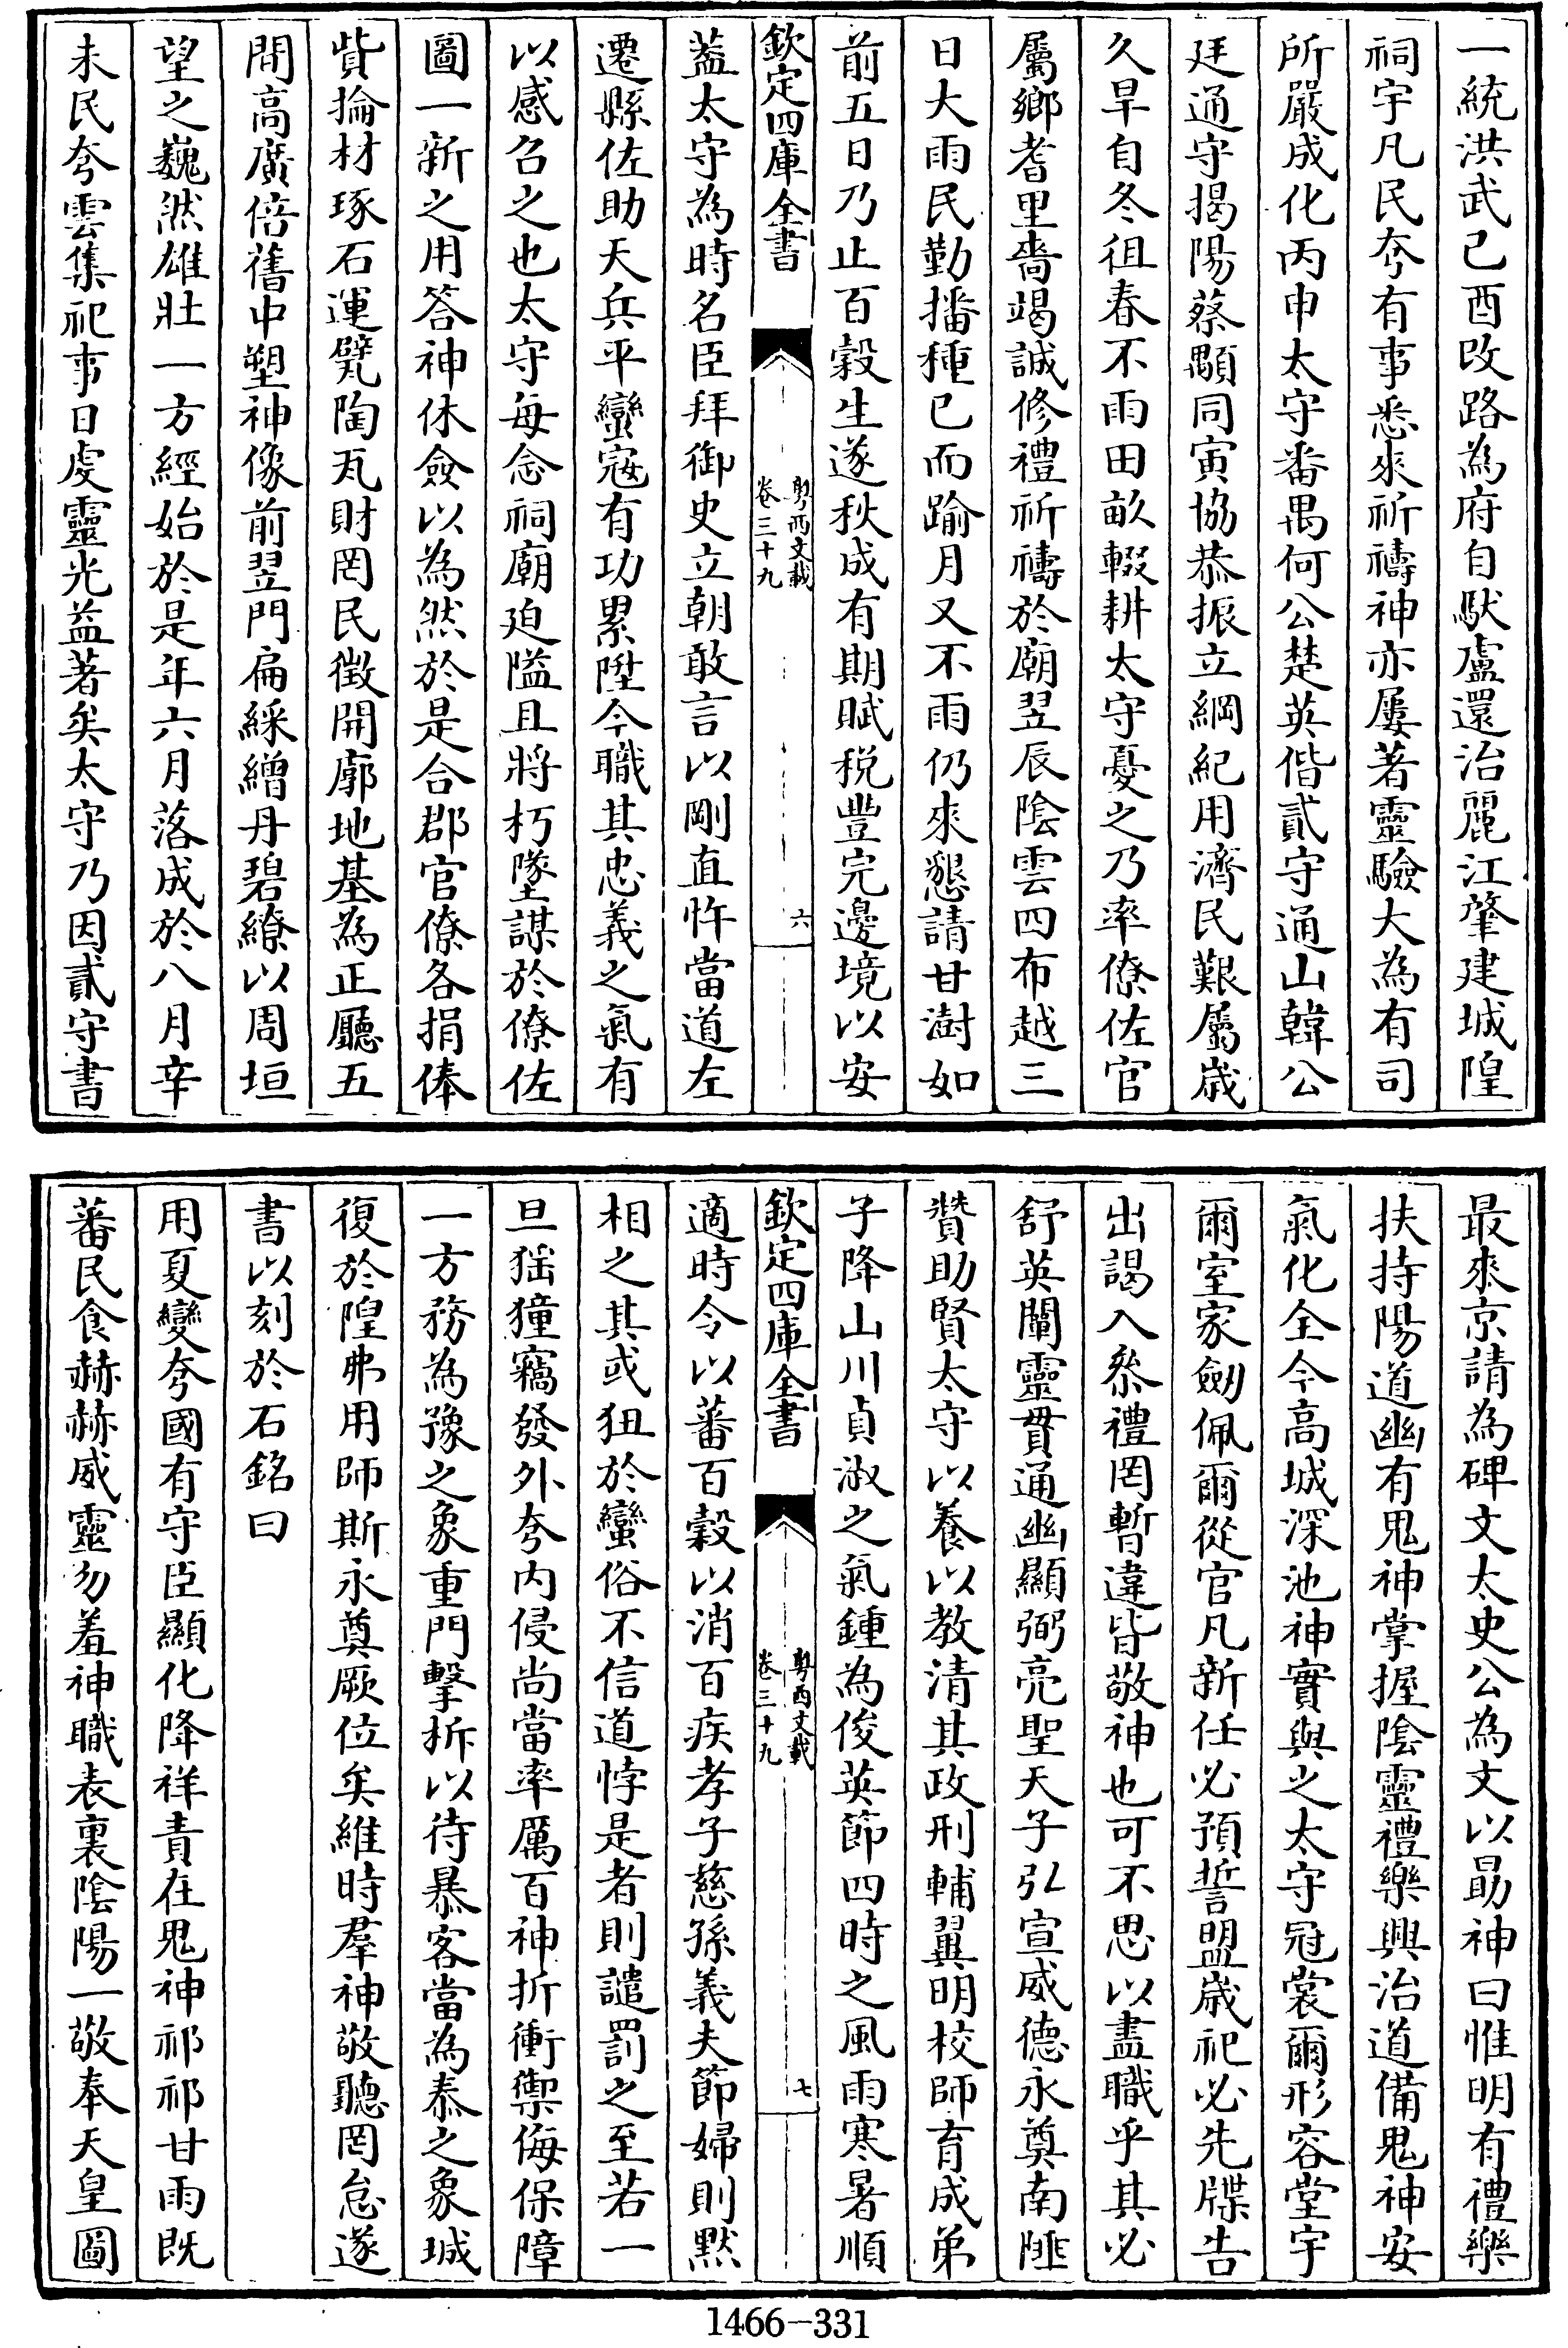 一統洪武己酉改路為府自馱盧還治麗江肇建城隍
祠宇凡民夷有事悉來祈禱神亦屢著靈驗大為有司
所嚴成化丙申太守番禺何公楚英偕貳守通山韓公
廷通守揭陽蔡顒同寅協恭振立綱紀用濟民艱屬歲
久旱自冬徂春不雨田畝輟耕太守憂之乃率僚佐官
屬鄉耆里嗇竭誠修禮祈禱於廟翌辰陰雲四布越三
日大雨民勤播種已而踰月又不雨仍來懇請甘澍如
前五日乃止百穀生遂秋成有期賦稅豐完邊境以安
欽定四庫全書
粤西文載
卷三十九
六
蓋太守為時名臣拜御史立朝敢言以剛直忤當道左
遷縣佐助天兵平蠻寇有功累陞今職其忠義之氣有
以感召之也太守每念祠廟迫隘且將朽墜謀於僚佐
圖一新之用答神休僉以為然於是合郡官僚各捐俸
貲掄材琢石運甓陶瓦財罔民徵開廓地基為正廳五
間高廣倍舊中塑神像前翌門扁綵繒丹碧繚以周垣
望之巍然雄壯一方經始於是年六月落成於八月辛
未民夷雲集祀事日虔靈光益著矣太守乃因貳守書
最來京請為碑文太史公為文以勗神曰惟明有禮樂
扶持陽道幽有鬼神掌握陰靈禮樂興治道備鬼神安
氣化全今高城深池神實與之太守冠裳爾形容堂宇
爾室家劍佩爾從官凡新任必預誓盟歲祀必先牒告
出謁入叅禮罔暫違皆敬神也可不思以盡職乎其必
舒英闡靈貫通幽顯弼亮聖天子弘宣威德永奠南陲
贊助賢太守以養以教清其政刑輔翼明校師育成弟
子降山川貞淑之氣鍾為俊英節四時之風雨寒暑順
欽定四庫全書
粤西文載
卷三十九
七
適時令以蕃百穀以消百疾孝子慈孫義夫節婦則默
相之其或狃於蠻俗不信道悖是者則譴罰之至若一
旦猺獞竊發外夷內侵尚當率厲百神折衝禦侮保障
一方務為豫之象重門擊柝以待暴客當為泰之象城
復於隍弗用師斯永奠厥位矣維時羣神敬聽罔怠遂
書以刻於石銘曰
用夏變夷國有守臣顯化降祥責在鬼神祁祁甘雨既
蕃民食赫赫威靈勿羞神職表裏陰陽一敬奉天皇圖
1466-331